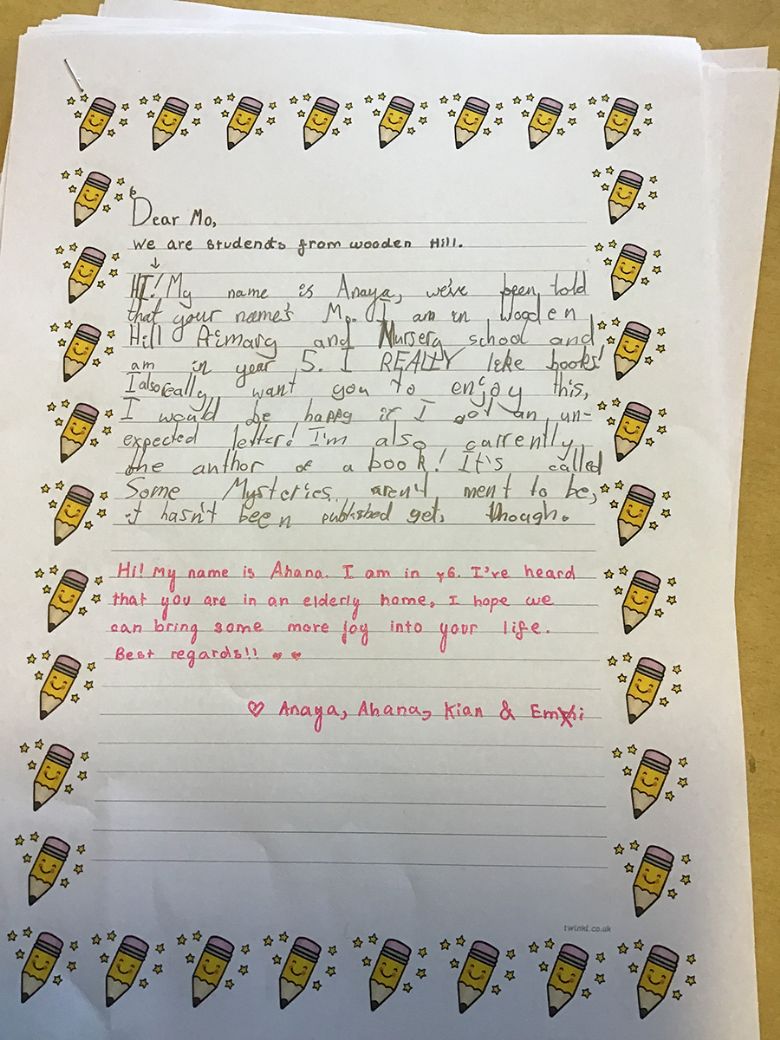 Dear Mo,
We are students from wooden Hill.
HI! My name is Anaya, we've been told
that your name's Mo. I am in Wooden
Hill Primary and Nursery school and
am in year 5. I REALLY like books!
I also really want you to enjoy this,
I would be happy if I got an un-
expected letter! I'm also currently
the author of a book! It's called
Some Mysteries aren't ment to be,
it hasn't been published yet, though.
Hi! My name is Ahana. I am in y6. I've heard
that you are in an elderly home, I hope we
can bring some more joy into your life.
Best regards!! ♥ ♥
♡ Anaya, Ahana, Kian &
twinkl.co.uk